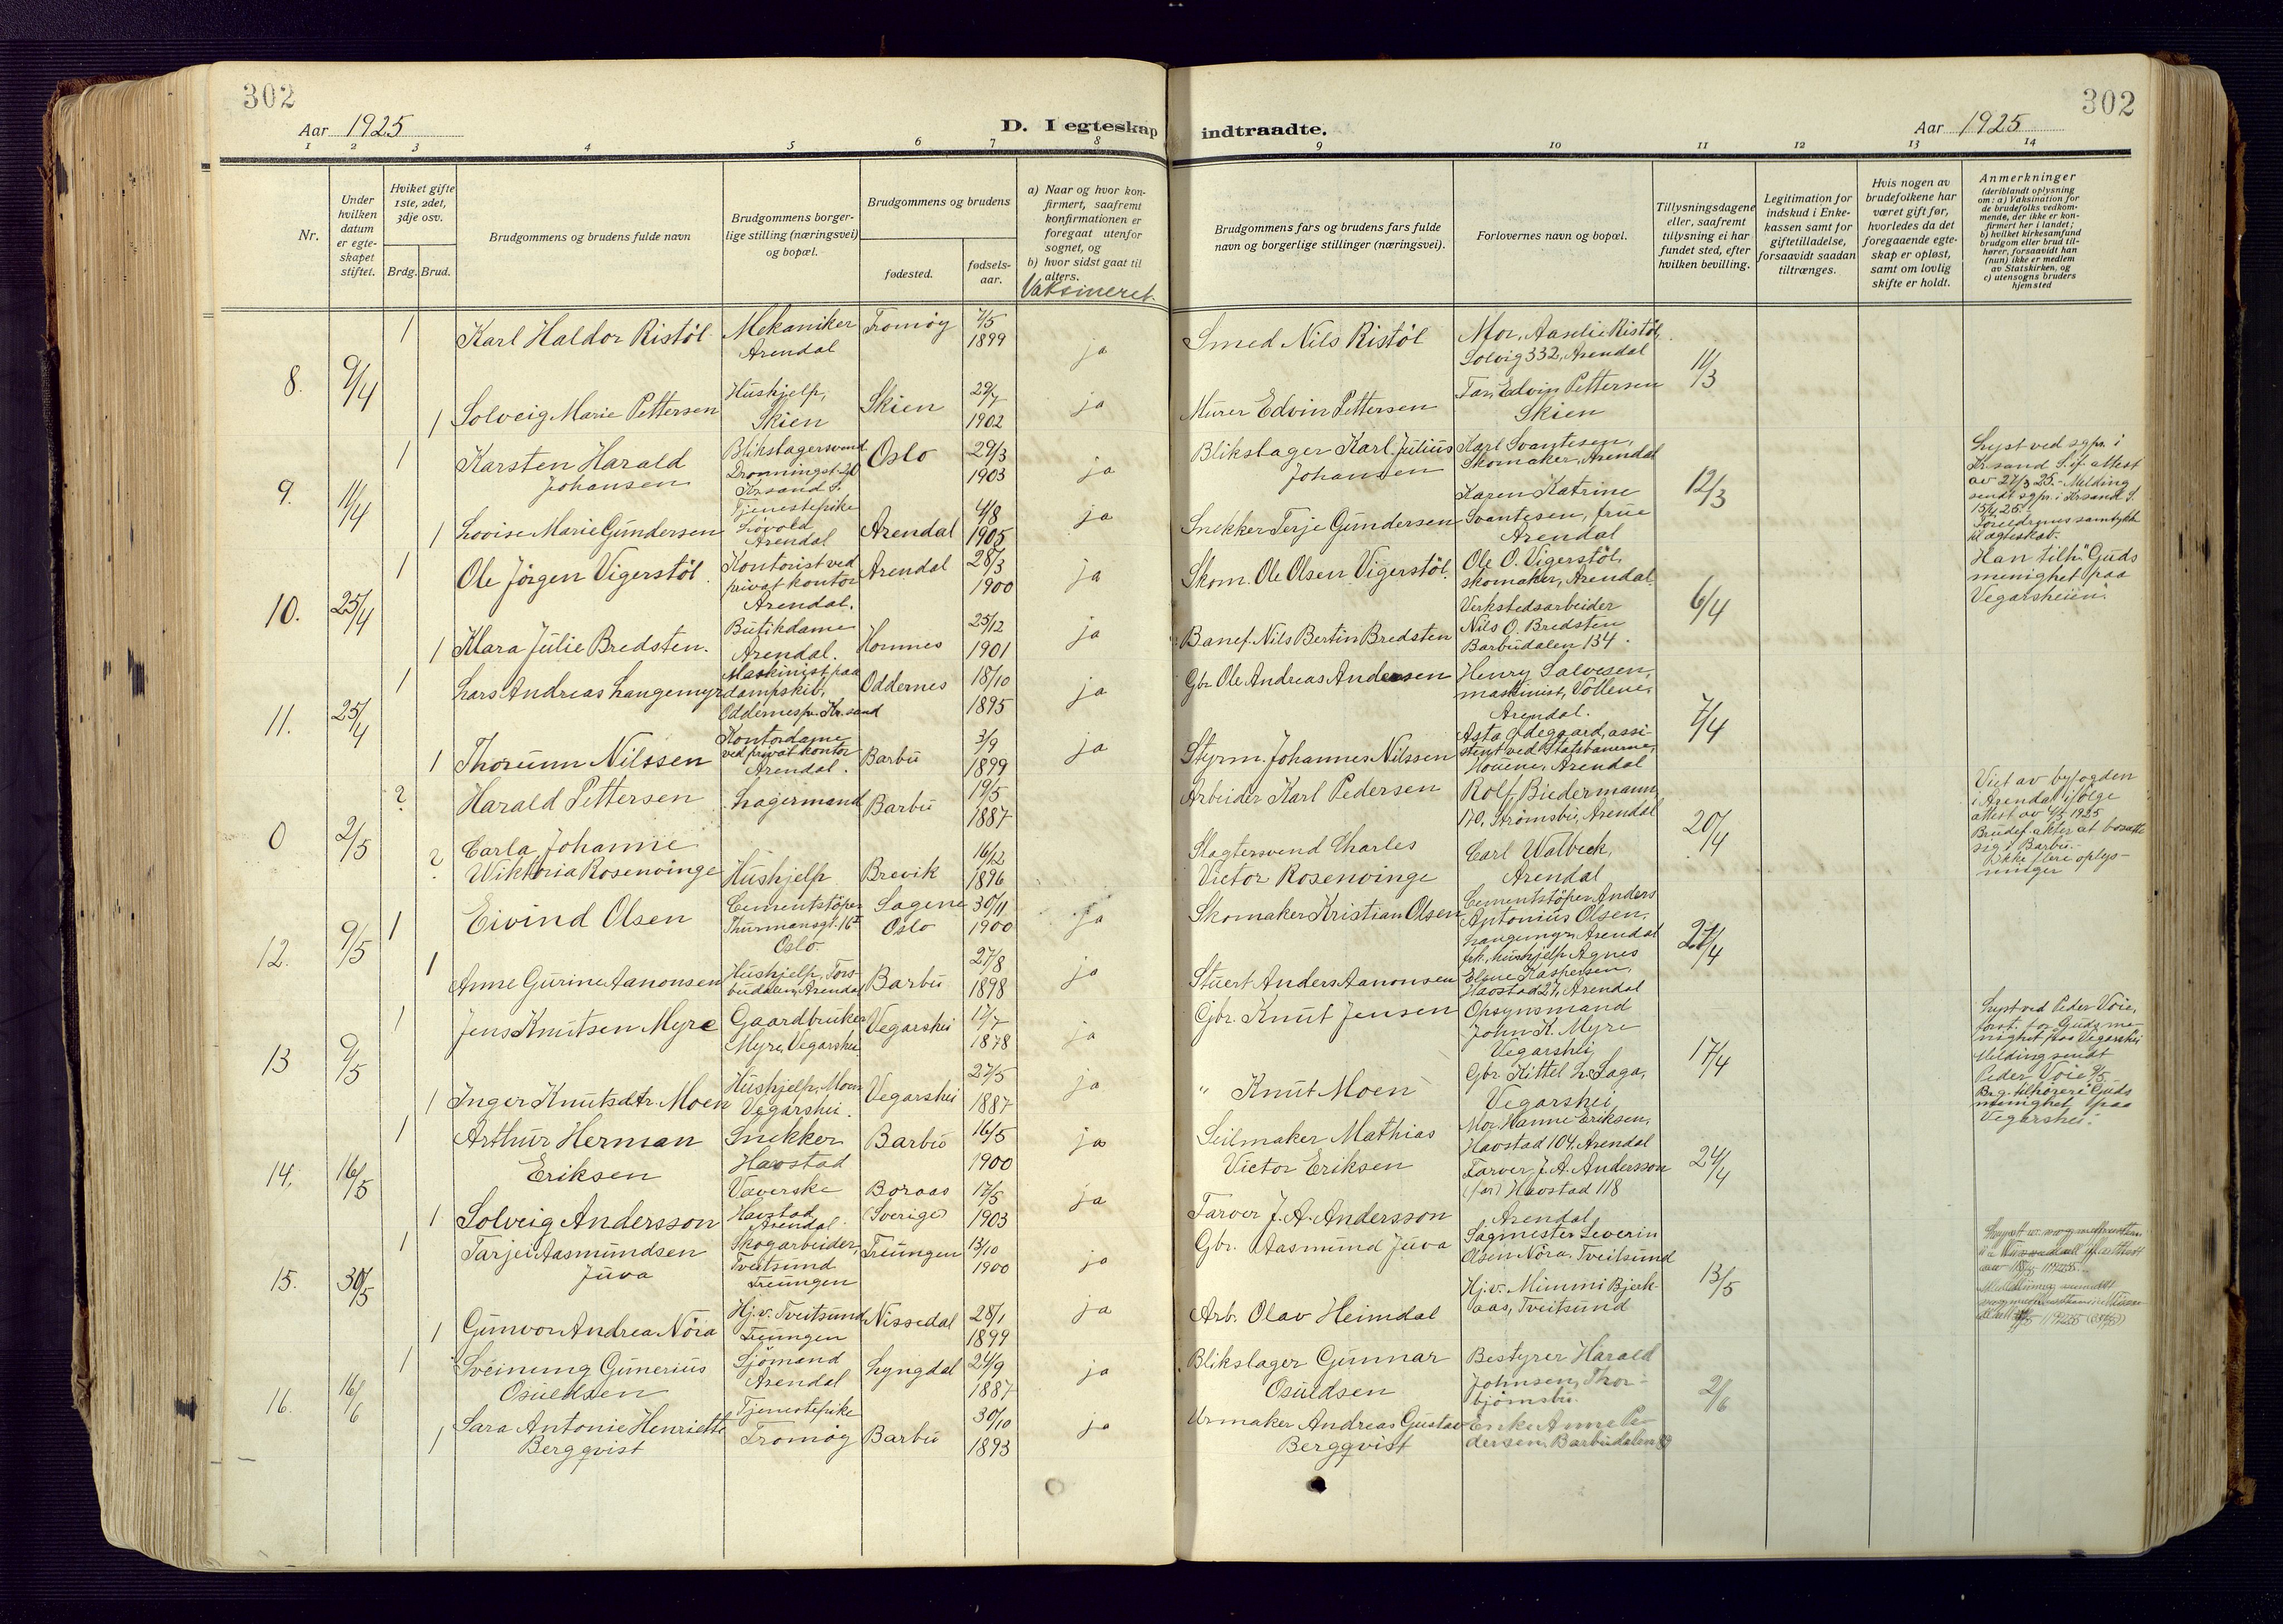 302
302
Aar 1925
D. I egteskap
indtraadte.
Aar 1925
1 2 3 4 5 6 7 8
9 10 11 12 13 14
Nr.
Under
hvilken
datum
er egte-
skapet
stiftet.
Hviket gifte
1ste, 2det,
3dje osv.
Brdg. Brud.
Brudgommens og brudens fulde navn
Brudgommens borger-
lige stilling (næringsvei)
og bopæl.
Brudgommens og brudens
fødested.
fødsels-
aar.
a) Naar og hvor kon-
firmert, saafremt
konfirmationen er
foregaat utenfor
sognet, og
b) hvor sidst gaat til
alters.
Vaksineret.
Brudgommens fars og brudens fars fulde
navn og borgerlige stillinger (næringsvei).
Forlovernes navn og bopæl.
Tillysningsdagene
eller, saafremt
tillysning ei har
fundet sted, efter
hvilken bevilling.
Legitimation for
indskud i Enke-
kassen samt for
giftetilladelse,
forsaavidt saadan
tiltrænges.
Hvis nogen av
brudefolkene har
været gift før,
hvorledes da det
foregaaende egte-
skap er opløst,
samt om lovlig
skifte er holdt.
Anmerkninger
(deriblandt oplysning
om: a) Vaksination for
de brudefolks vedkom-
mende, der ikke er kon-
firmert her i landet;
b) hvilket kirkesamfund
brudgom eller brud til-
hører, forsaavidt han
(hun) ikke er medlem
av Statskirken, og
c) utensogns bruders
hjemsted
8. 9/4
1 Karl Haldor Ristöl
Mekaniker
Arendal
Tromöy
7/5
1899
ja
Smed Nils Ristöl
Mor, Aaselie Ristöl,
Solvig 332, Arendal
11/3
1 Solveig Marie Pettersen
Hushjelp,
Skien
Skien
29/7
1902
ja
Murer Edvin Pettersen
Far, Edvin Pettersen
Skien
9. 11/4
1 Karsten Harald
Johansen
Blikslagersvend
Dronningst. 20
Krsand S.
Oslo
29/3
1903
ja
Blikslager Karl Julius
Johansen
Karl Svantesen,
Skomaker, Arendal
12/3
Lyst ved sgpr. i
Kr.sand S. if. attest
av 27/3 25. - Melding
sendt sgpr. i Krsand S.
15/4 25.
Foreldrenes samtykke
til ægteskab.
1 Lovise Marie Gundersen
Tjenestepike
Lövold
Arendal
Arendal
4/8
1905
ja
Snekker Terje Gundersen
Karen Katrine
Svantesen, frue
Arendal
10. 25/4
1 Ole Jörgen Vigerstöl
Kontorist ved
privat kontor
Arendal.
Arendal
28/3
1900
ja
Skom. Ole Olsen Vigerstöl
Ole O. Vigerstöl,
skomaker, Arendal.
6/4
Han tilh. "Guds
menighet paa
Vegarsheien".
1 Klara Julie Bredsten.
Butikdame
Arendal.
Homnes
25/12
1901
ja
Banef. Nils Bertin Bredsten
Verkstedsarbeider
Nils O. Bredsten
Barbudalen 134.
11. 25/4
1 Lars Andreas Langemyr
Maskinist paa
dampskib,
Oddernes pr. Kr.sand
Oddernes
18/10
1895
ja
Gbr. Ole Andreas Andersen
Henry Salvesen,
maskinist, Vollene,
Arendal.
7/4
1 Thorunn Nilssen
Kontordame
ved privat kontor
Arendal.
Barbu
3/9
1899
ja
Styrm. Johannes Nilssen
Asta Ödegaard, assi-
stent ved Statsbanerne,
Houene, Arendal
0 2/5
2 Harald Pettersen
Lagermand
Barbu
19/5
1887
Arbeider Karl Pedersen
Rolf Biedermann,
170, Strömsbu, Arendal
20/4
Viet av byfogden
i Arendal ifölge
attest av 4/5 1925
Brudef. akter at bosætte
sig i Barbu. -
Ikke flere oplys-
ninger
2 Carla Johanne
Wiktoria Rosenvinge
Hushjelp
Brevik
16/12
1896
Slagtersvend Charles
Victor Rosenvinge
Carl Walbeck,
Arendal
12. 9/5
1 Eivind Olsen
Cementstöper
Thurmansgt. 16 I
Oslo
Sagene
Oslo
30/11
1900
ja
Skomaker Kristian Olsen
Cementstöper Anders
Antonius Olsen,
Langemyr, Arendal
27/4
1 Anne Gurine Aanonsen
Hushjelp, Tors-
budalen, Arendal
Barbu
27/8
1898
ja
Stuert Anders Aanonsen
frk. hushjelp Agnes
Elene Kaspersen,
Havstad 27, Arendal
13 9/5
1 Jens Knutsen Myre
Gaardbruker
Myre, Vegarshei
Vegarshei
12/7
1878
ja
Gbr. Knut Jensen
Opsynsmand
John K. Myre
Vegarshei
17/4
Lyst ved Peder Voie,
forst. for Guds me-
nighet paa Vegarshei
Melding sendt
Peder Voie 9/5
Brg. tilhörer "Guds
menighet paa
Vegarshei".
1 Inger Knutsdtr. Moen
Hushjelp, Moen
Vegarshei.
Vegarshei
27/5
1887
ja
" Knut Moen
Gbr. Kittel L. Laga,
Vegarshei
14. 16/5
1 Arthur Herman
Eriksen
Snekker
Havstad
Barbu
16/5
1900
ja
Seilmaker Mathias
Victor Eriksen
Mor, Hanne Eriksen,
Havstad 104, Arendal
24/4
1 Solveig Andersson
Væverske
Havstad
Arendal.
Boraas
(Sverige)
17/5
1903
ja
Farver J. A. Andersson
Farver J. A. Andersson
(far) Havstad 118
Arendal
15. 30/5
1 Tarjei Aasmundsen
Juva
Skogarbeider,
Tveitsund
Treungen
Treungen
13/10
1900
ja
Gbr. Aasmund Juva
Sagmester Severin
Olsen Nöra, Tveitsund
13/5
1 Gunvor Andrea Nöra
Hj.v. Tveitsund
Treungen
Nissedal
28/1
1899
ja
Arb. Olav Heimdal
Hj.v. Mimmi Bjerk-
aas, Tveitsund
16. 16/6
1 Sveinung Gunerius
Osuldsen
Sjömand
Arendal
Lyngdal
24/9
1887
ja
Blikslager Gunnar
Osuldsen
Bestyrer Harald
Johnsen, Thor-
björnsbu.
2/6
1 Sara Antonie Henriette
Bergqvist
Tjenestepike
Tromøy
Barbu
30/10
1893
ja
Urmaker Andreas Gustav
Bergqvist
Enke Anne Pe-
dersen, Barbudalen